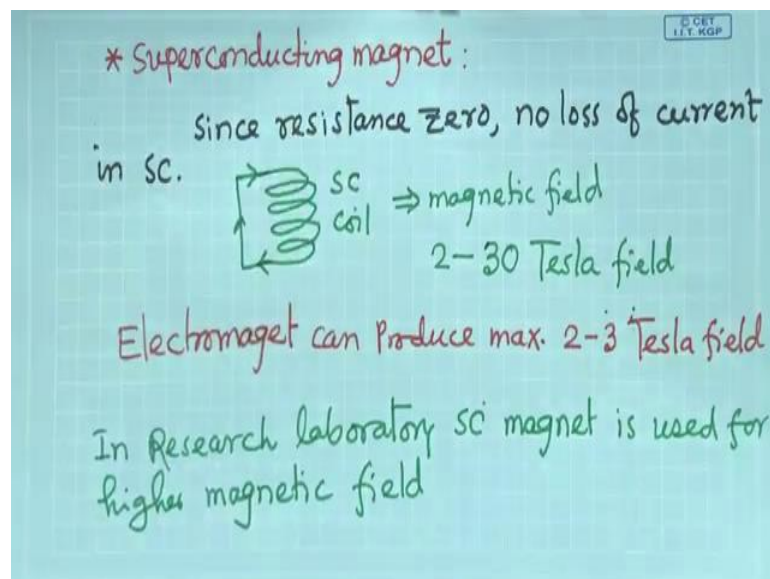 © CET
I.I.T. KGP
* Superconducting magnet :
since resistance zero, no loss of current
in sc.
SC
coil
⇒ magnetic field
2-30 Tesla field
Electromaget can Produce max. 2-3 Tesla field
In Research laboratory SC magnet is used for
higher magnetic field